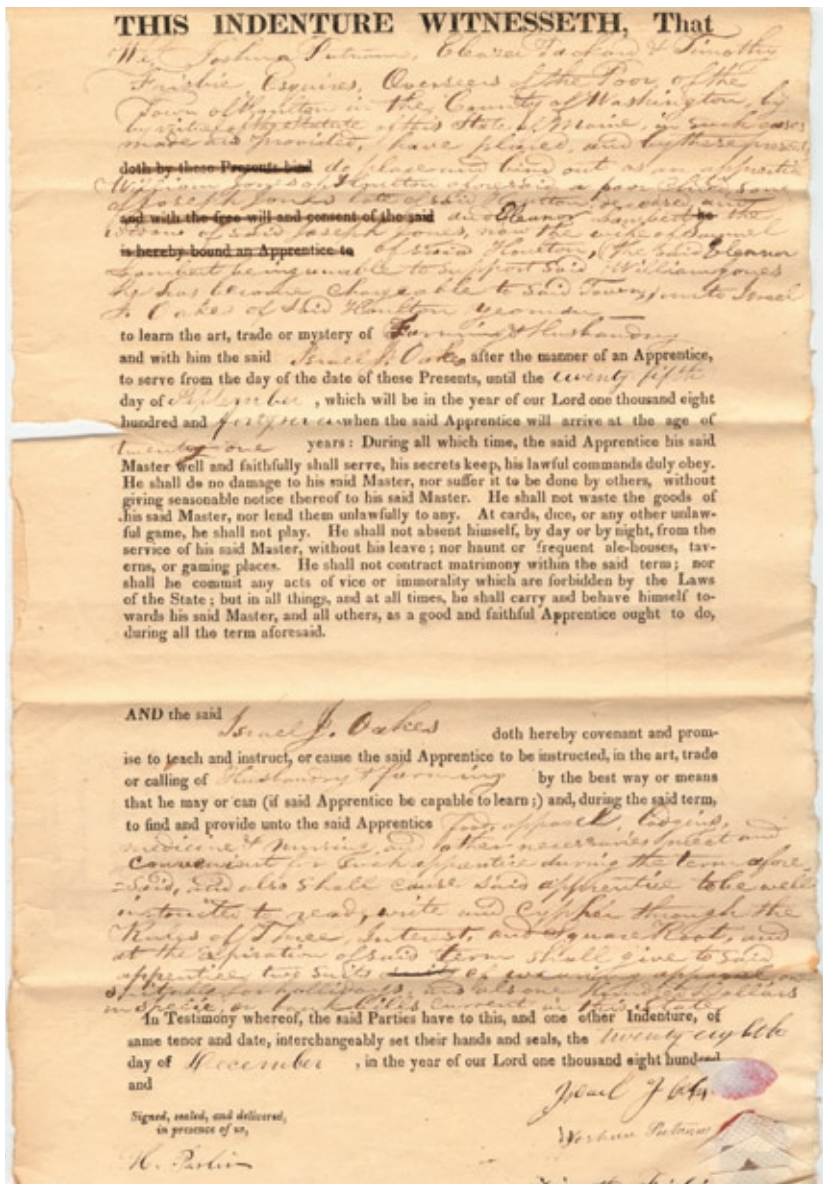 THIS INDENTURE WITNESSETH, That
We, Joshua Putnam, Eleazer Packard & Timothy
Frisbie, Esquires, Overseers of the Poor, of the
Town of Houlton in the County of Washington, by
by virtue of the Statute of this State of Maine, in such cases
made and provided, have placed, and by these presents
doth by these Presents bind do place and bind out as an apprentice
William Jones of Houlton aforesaid a poor child, son
of Joseph Jones late of said Houlton, and
and with the free will and consent of the said Eleanor he the
widow of said Joseph Jones, now the wife of Samuel
is hereby bound an Apprentice to of said Houlton, (the said Eleanor
Lambert being unable to support said William Jones
he has become chargeable to said Town) unto Israel
J. Oakes of said Houlton yeoman
to learn the art, trade or mystery of Farming & Husbandry
and with him the said Israel J. Oakes after the manner of an Apprentice,
to serve from the day of the date of these Presents, until the twenty fifth
day of September , which will be in the year of our Lord one thousand eight
hundred and when the said Apprentice will arrive at the age of
twenty one years: During all which time, the said Apprentice his said
Master well and faithfully shall serve, his secrets keep, his lawful commands duly obey.
He shall do no damage to his said Master, nor suffer it to be done by others, without
giving seasonable notice thereof to his said Master. He shall not waste the goods of
his said Master, nor lend them unlawfully to any. At cards, dice, or any other unlaw-
ful game, he shall not play. He shall not absent himself, by day or by night, from the
service of his said Master, without his leave; nor haunt or frequent ale-houses, tav-
erns, or gaming places. He shall not contract matrimony within the said term; nor
shall he commit any acts of vice or immorality which are forbidden by the Laws
of the State; but in all things, and at all times, he shall carry and behave himself to-
wards his said Master, and all others, as a good and faithful Apprentice ought to do,
during all the term aforesaid.
AND the said Israel J. Oakes doth hereby covenant and prom-
ise to teach and instruct, or cause the said Apprentice to be instructed, in the art, trade
or calling of Husbandry & farming by the best way or means
that he may or can (if said Apprentice be capable to learn;) and, during the said term,
to find and provide unto the said Apprentice food, apparel, lodging,
medicine & nursing, and other necessaries meet and
convenient for such apprentice during the term afore
-said, and also shall cause said apprentice to be well
instructed to read, write and cypher through the
Rules of Three, Interest, and Square Root, and
at the expiration of said term shall give to said
apprentice two suits of wearing apparel one
suitable for hollidays, and also one Hundred Dollars
in specie, or bank bills current in this State
In Testimony whereof, the said Parties have to this, and one other Indenture, of
same tenor and date, interchangeably set their hands and seals, the twenty eighth
day of December , in the year of our Lord one thousand eight hundred
and
Signed, sealed, and delivered,
in presence of us,
Israel J. Oakes
Joshua Putnam
H. Parlin